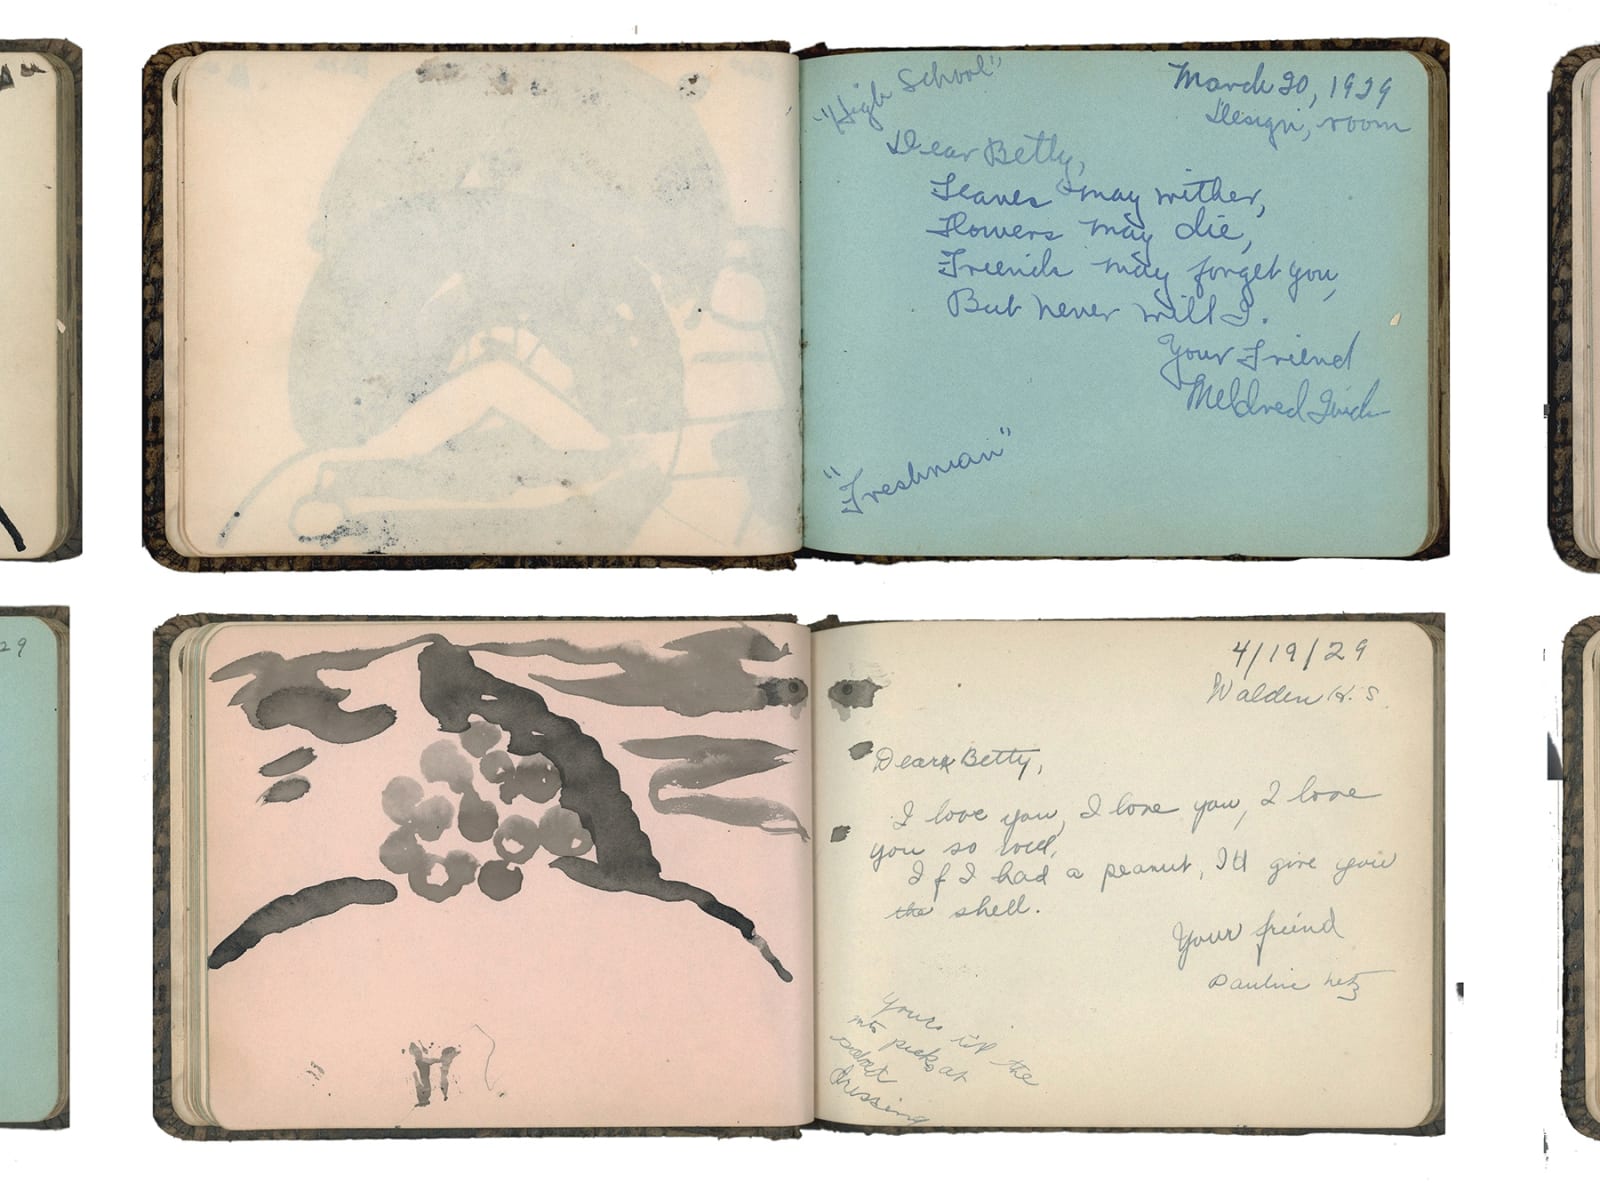 "High School"
March 20, 1929
Design, room
Dear Betty,
Leaves may wither,
Flowers may die,
Friends may forget you,
But never will I.
Your Friend
Mildred
"Freshman"
29
4/19/29
Walden H. S.
Dear Betty,
I love you, I love you, I love
you so well,
If I had a peanut, I'd give you
the shell.
Your friend
Pauline Netz
Yours till the
mts picks at
salad
dressing